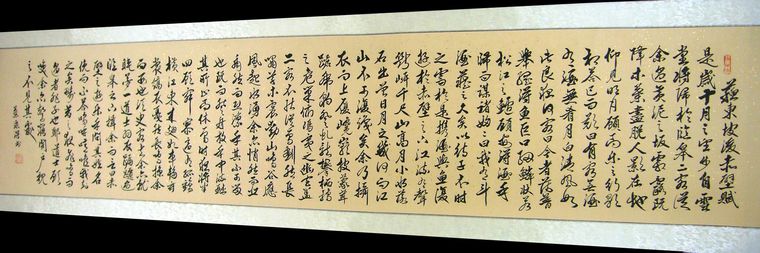 蘇東坡後赤壁賦
是歲十月之望步自雪
堂將歸於臨皋二客從
余過黃泥之坂霜露既
降木葉盡脫人影在地
仰見明月顧而樂之行歌
相答已而歎曰有客無酒
有酒無肴月白風清如
此良夜何客曰今者薄暮
舉網得魚巨口細鱗狀如
松江之鱸顧安所得酒乎
歸而謀諸婦婦曰我有斗
酒藏之久矣以待子不時
之需於是攜酒與魚復
遊於赤壁之下江流有聲
斷岸千尺山高月小水落
石出曾日月之幾何而江
山不可復識矣余乃攝
衣而上履巉巖披蒙茸
踞虎豹登虬龍攀棲鶻
之危巢俯馮夷之幽宮蓋
二客不能從焉劃然長
嘯草木震動山鳴谷應
風起水湧余亦悄然而悲
肅然而恐凜乎其不可留
也反而登舟放乎中流聽
其所止而休焉時夜將半
四顧寂寥適有孤鶴
橫江東來翅如車輪玄
裳縞衣戛然長鳴掠余
舟而西也須臾客去余亦就
睡夢一道士羽衣蹁躚過
臨皋之下揖余而言曰赤
壁之遊樂乎問其姓名
俛而不答嗚呼噫嘻我知
之矣疇昔之夜飛鳴而
過我者非子也耶道士顧
笑余亦驚寤開戶視
之不見其處